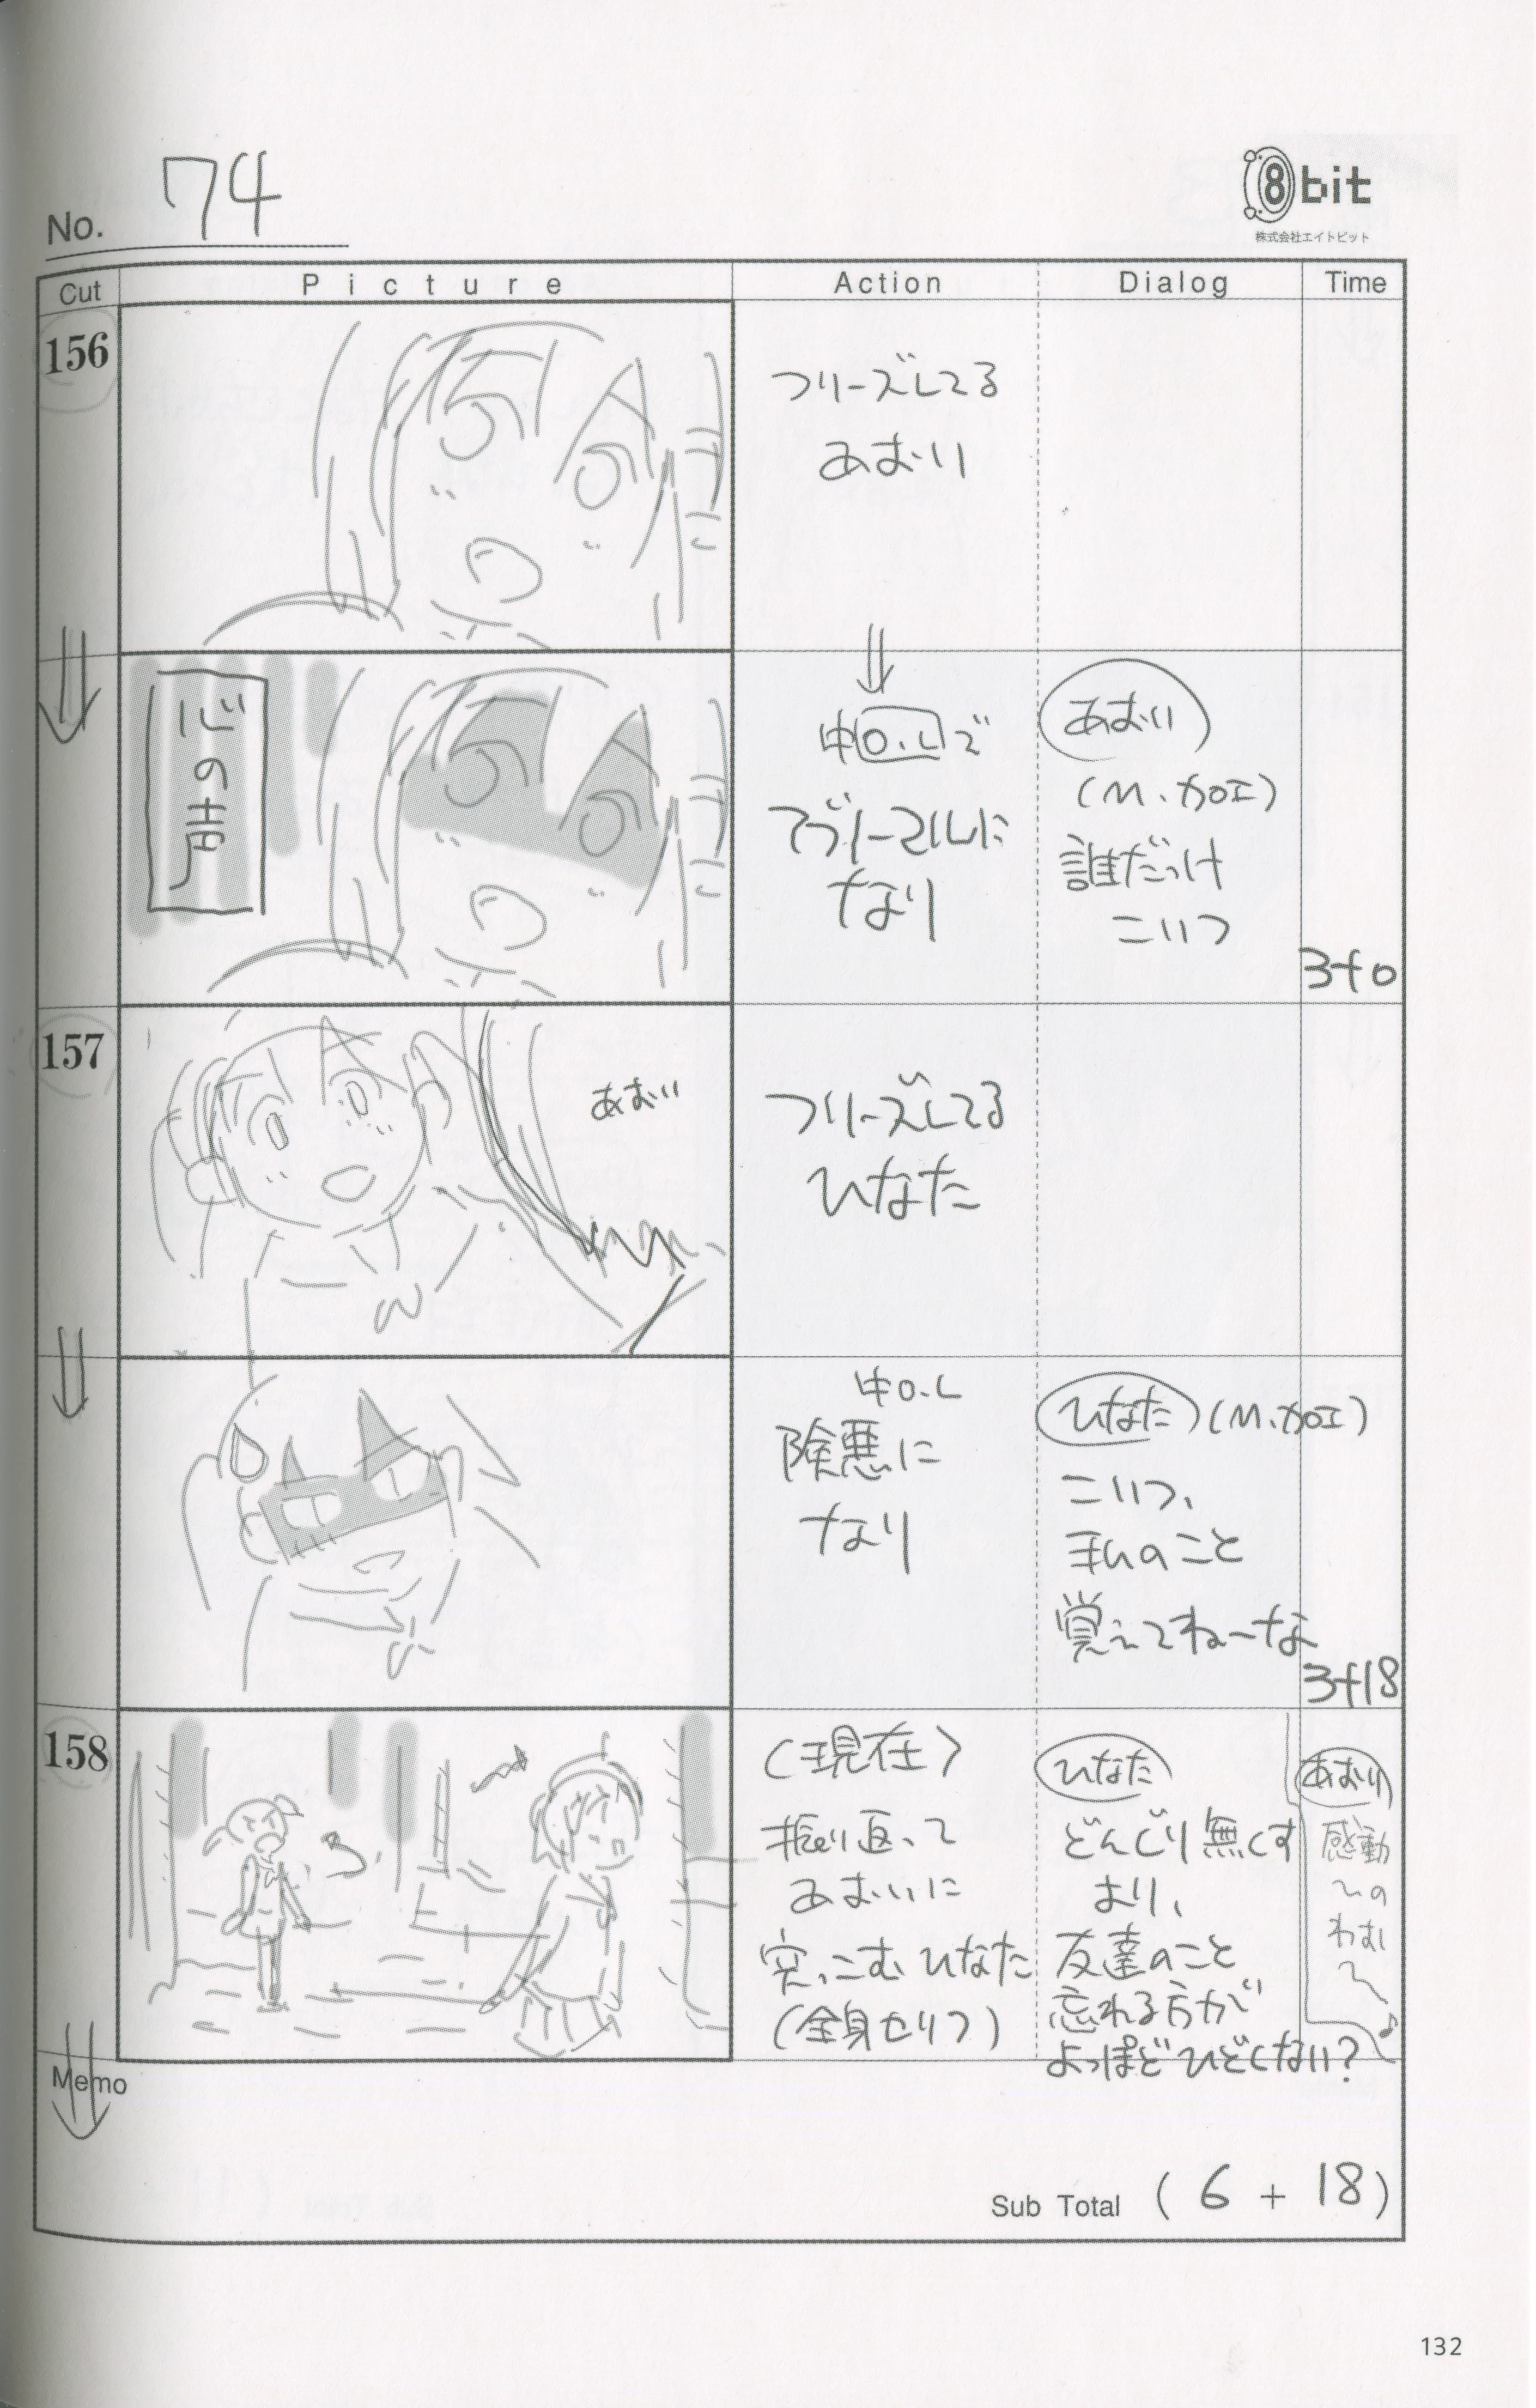 No. 74
8bit
株式会社エイトビット
Cut Picture Action Dialog Time
156
フリーズしてる
あおい
心の声
中O.Lで
アブノーマルに
なり
あおい
(M.加工)
誰だっけ
こいつ
3+0
157
あおい
フリーズしてる
ひなた
中O.L
険悪に
なり
ひなた (M.加工)
こいつ、
私のこと
覚えてねーな
3+18
158
(現在)
振り返って
あおいに
突っこむひなた
(全身セリフ)
ひなた
どんぐり無くす
より、
友達のこと
忘れる方が
よっぽどひどくない?
あおい
感動
Memo
Sub Total ( 6 + 18 )
132